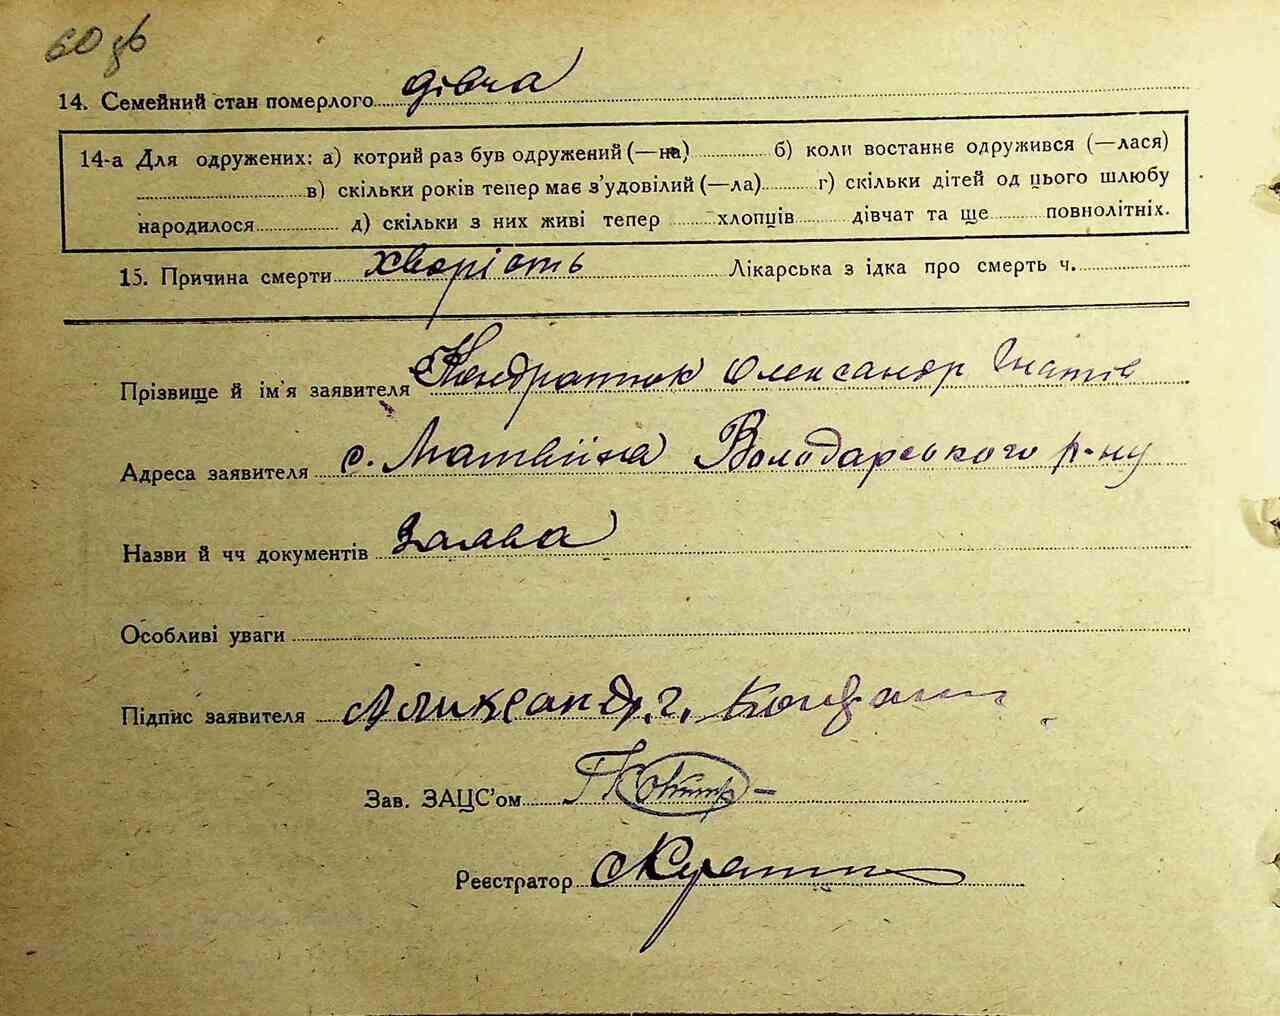 60 зв
14. Семейний стан померлого дівча
14-а Для одружених: а) котрий раз був одружений (—на) б) коли востаннє одружився (—лася)
в) скільки років тепер має з'удовілий (—ла) г) скільки дітей од цього шлюбу
народилося д) скільки з них живі тепер хлопців дівчат та ще повнолітніх.
15. Причина смерти хворість Лікарська з ідка про смерть ч.
Прізвище й ім'я заявителя Кондратюк Олександр Гнатів
Адреса заявителя с. Матвіїха Володарського р-ну
Назви й чч документів Заява
Особливі уваги
Підпис заявителя
Зав. ЗАЦС'ом
Реєстратор